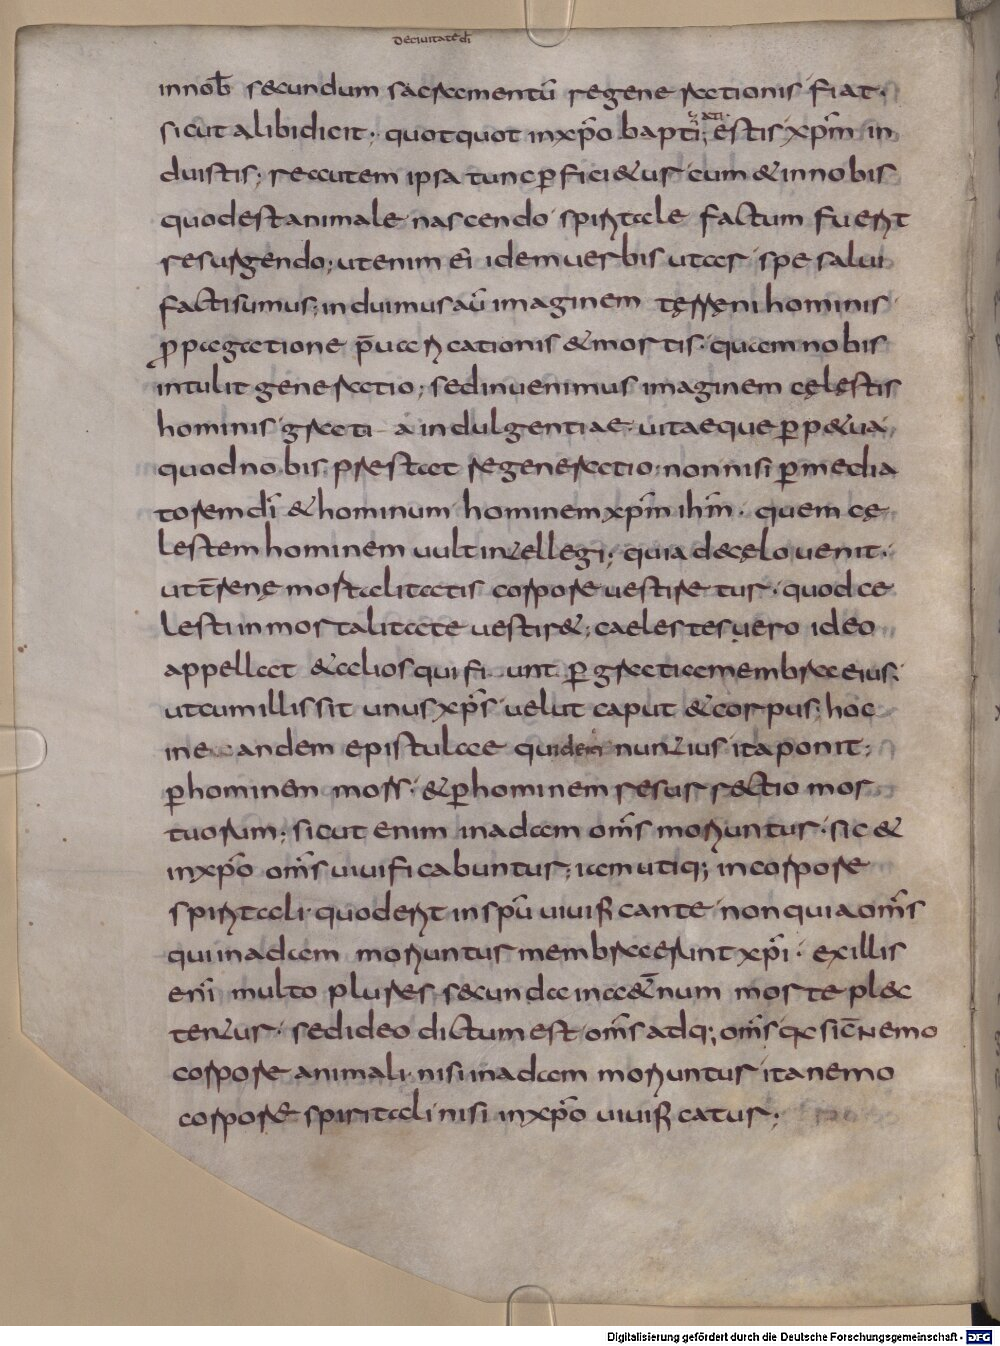 De ciuitate dī
in nob̄ secundum sacramentū regenerationis fiat.
sicut alibi dicit; quotquot in xp̄o bapti;zati estis xp̄m in
duistis; re autem ipsa tunc ꝑficietur cum & in nobis
quod est animale nascendo spiritale factum fuerit
resurgendo; ut enim ei idem uerbis utar spe salui
facti sumus; induimus aū imaginem terreni hominis
ꝓpagatione p̄uaricationis & mortis quam nobis
intulit generatio; sed inuenimus imaginem cęlestis
hominis grati a indulgentiae uitaeque ꝑp&ua
quod nobis prestat regeneratio non nisi ꝑ media
torem dī & hominum hominem xp̄m ih̄m. quem cę
lestem hominem uult intellegi; quia de cęlo uenit.
ut t̄rene mortalitatis corpore uestiretur. quod ce
lesti inmortalitate uestir&; caelestes uero ideo
appellat & alios qui fiunt ꝑ gratiam membra eius.
ut cum illis sit unus xp̄s uelut caput & corpus; hoc
in eandem epistulae quidem nuntius ita ponit;
ꝑ hominem mors. & ꝑ hominem resurrectio mor
tuorum; sicut enim in adam om̄s moriuntur. sic &
in xp̄o om̄s uiuificabuntur; iam utiq; in corpore
spiritali quod erit in spū uiuificante non quia om̄s
qui in adam moriuntur membra erunt xp̄i. ex illis
eni multo plures secunda in aet̄num morte plec
tentur. sed ideo dictum est om̄s adq; om̄s q sic nemo
corpore animali nisi in adam moriuntur ita nemo
corpore spiritali nisi in xp̄o uiuificatur;
Digitalisierung gefördert durch die Deutsche Forschungsgemeinschaft - DFG